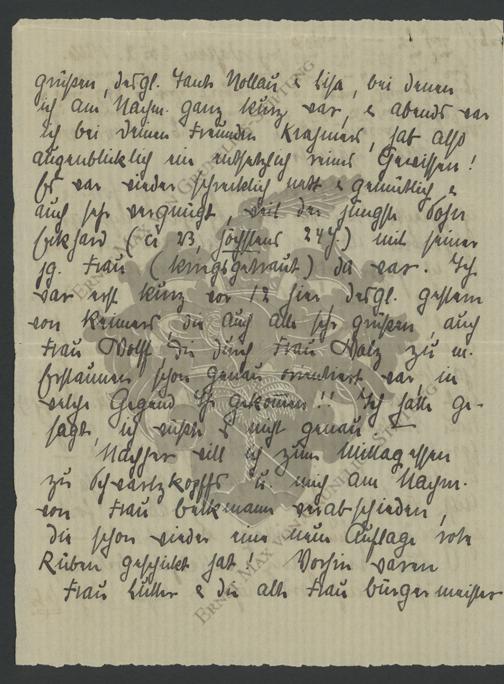 grüßen, desgl. Tante Nollau & Lisa, bei denen
ich am Nachm. ganz kurz war, & abends war
ich bei Deinen Freunden Krahmers, hab also
augenblicklich ein entsetzlich reines Gewissen!
Es war wieder schrecklich nett & gemütlich &
auch sehr vergnügt, weil der jüngste Sohn
Eckhard (ca 23, höchstens 24 J.) mit seiner
jg. Frau (kriegsgetraut) da war. Ich
war erst kurz vor 12 hier desgl. gestern
von Reimers die auch alle sehr grüßen, auch
Frau Wolff die durch Frau Walz zu m.
Erstaunen schon genau orientiert war in
welche Gegend Ihr gekommen!! Ich hatte ge-
sagt, ich wüßte es nicht genau.
Nachher will ich zum Mittagessen
zu Schwartzkopffs u. mich am Nachm.
von Frau Beckmann verabschieden,
die schon wieder eine neue Auflage rote
Rüben geschickt hat! Vorhin waren
Frau Lüller & die alte Frau Bürgermeister
ERNST MAX VON GRUNELIUS-STIFTUNG
ERNST MAX VON GRUNELIUS-STIFTUNG